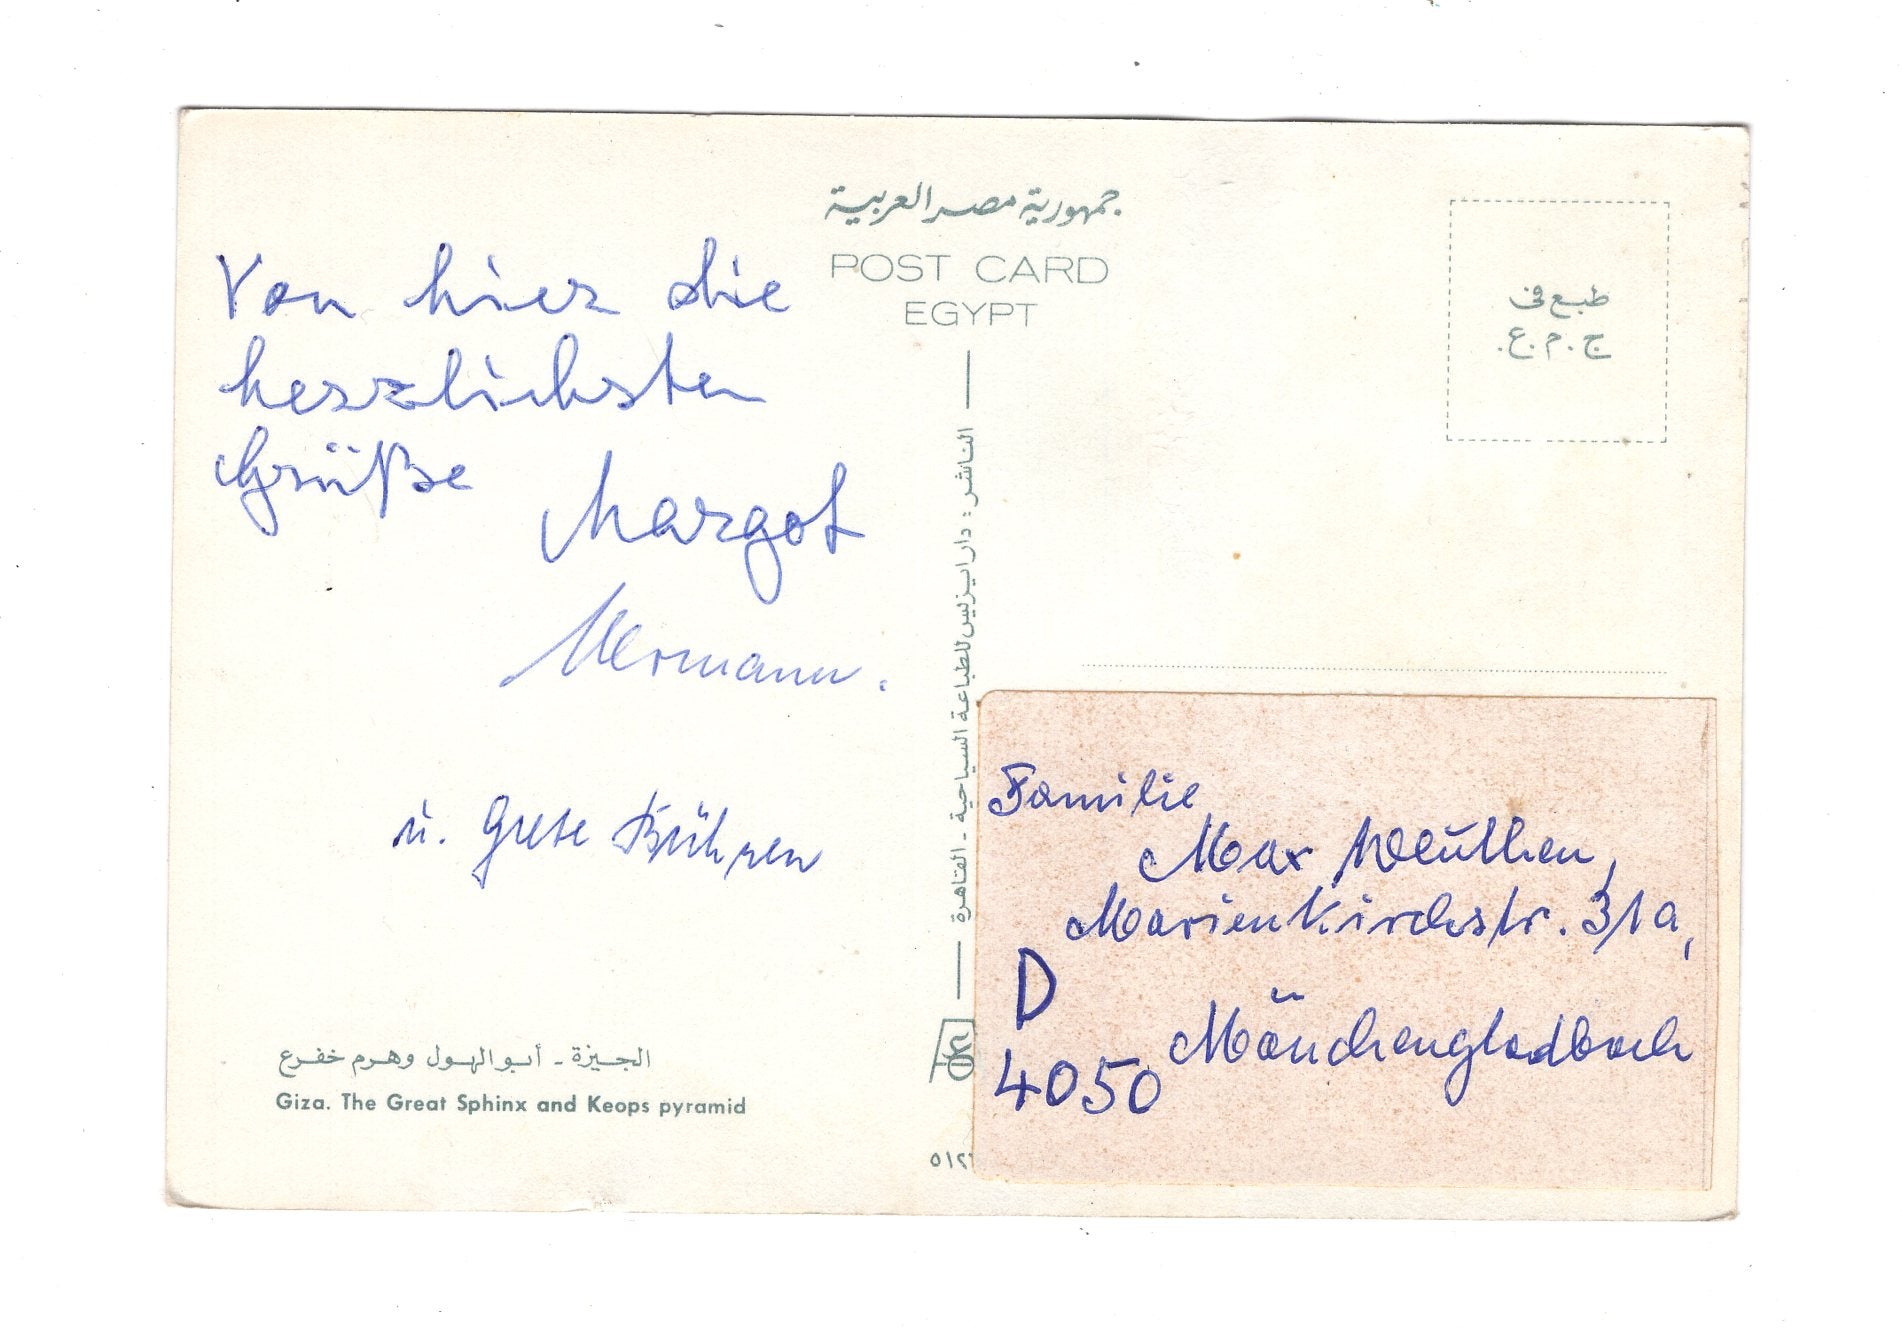 جمهورية مصر العربية
POST CARD
EGYPT
طبع في
ج.م.ع.
Von hier die
herzlichsten
Grüße Margot
Hermann.
u. Grete
الناشر: دار ايزيس للطباعة السياحية - القاهرة
Familie
Max Weuthen,
Marienkirchstr. 31a,
D
4050 Mönchengladbach
الجيزة - أبو الهول وهرم خفرع
Giza. The Great Sphinx and Keops pyramid